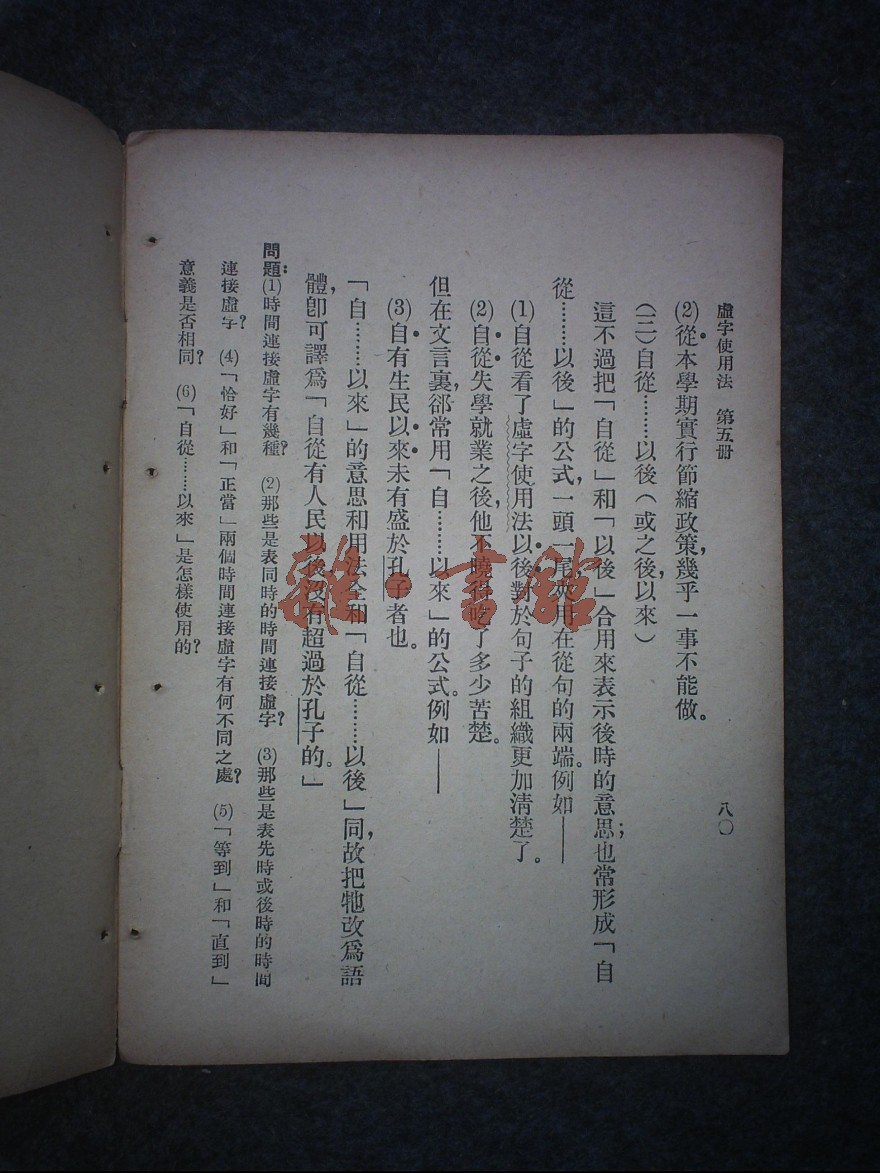 虛字使用法　第五册　八〇
(2)從本學期實行節縮政策，幾乎一事不能做。
(三)自從………以後（或之後，以來）
這不過把「自從」和「以後」合用來表示後時的意思；也常形成「自
從………以後」的公式，一頭一尾夾用在從句的兩端。例如——
(1)自從看了虛字使用法以後，對於句子的組織更加清楚了。
(2)自從失學就業之後，他不曉得吃了多少苦楚。
但在文言裏，郤常用「自………以來」的公式。例如——
(3)自有生民以來未有盛於孔子者也。
「自………以來」的意思和用法全和「自從………以後」同，故把牠改爲語
體，卽可譯爲「自從有人民以後，沒有超過於孔子的。」
問題：(1)時間連接虛字有幾種？　(2)那些是表同時的時間連接虛字？　(3)那些是表先時或後時的時間
連接虛字？　(4)「恰好」和「正當」兩個時間連接虛字有何不同之處？　(5)「等到」和「直到」
意義是否相同？　(6)「自從………以來」是怎樣使用的？
雜·書館